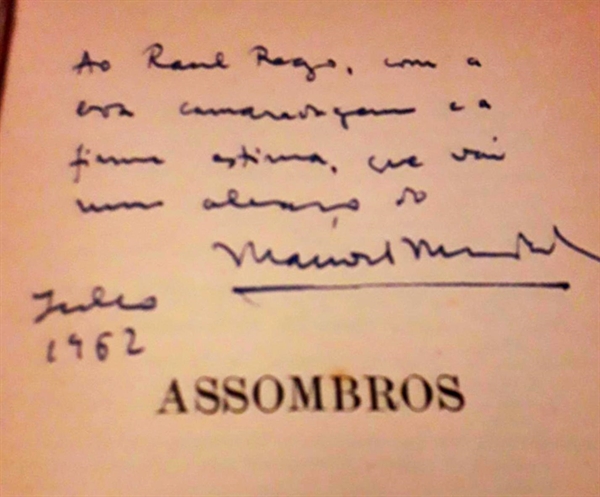 Ao Raul Rego, com a
boa camaradagem e a
firme estima, que vai
num abraço do
Manuel Mendes
Julho
1962
ASSOMBROS